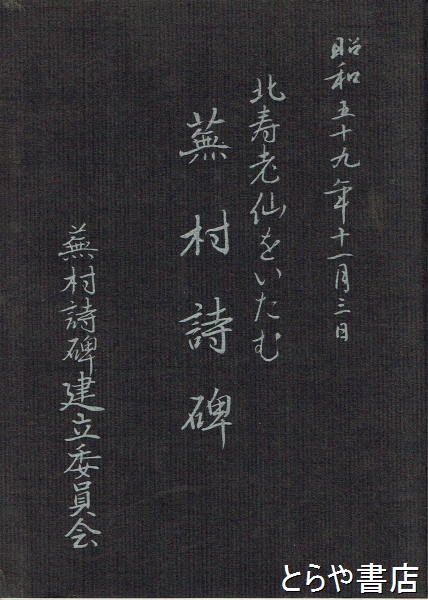 昭和五十九年十一月三日
北寿老仙をいたむ
蕪村詩碑
蕪村詩碑建立委員会
とらや書店